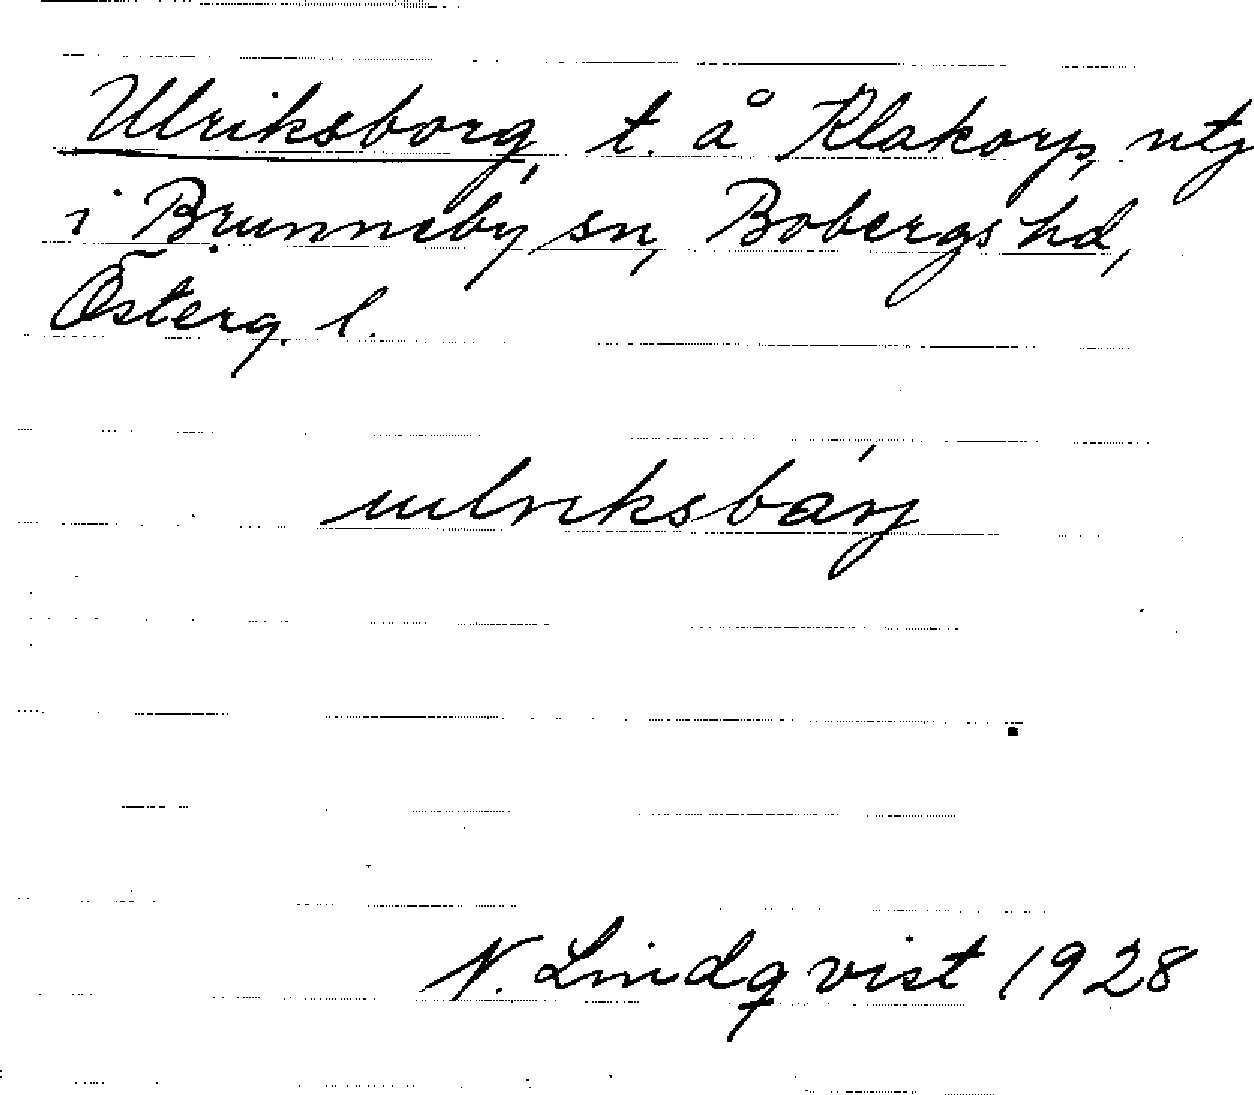 Ulriksborg, t. å Klakorp, utj
i Brunneby sn, Bobergs hd,
Österg. l.
ulriksbárj
N. Lindqvist 1928